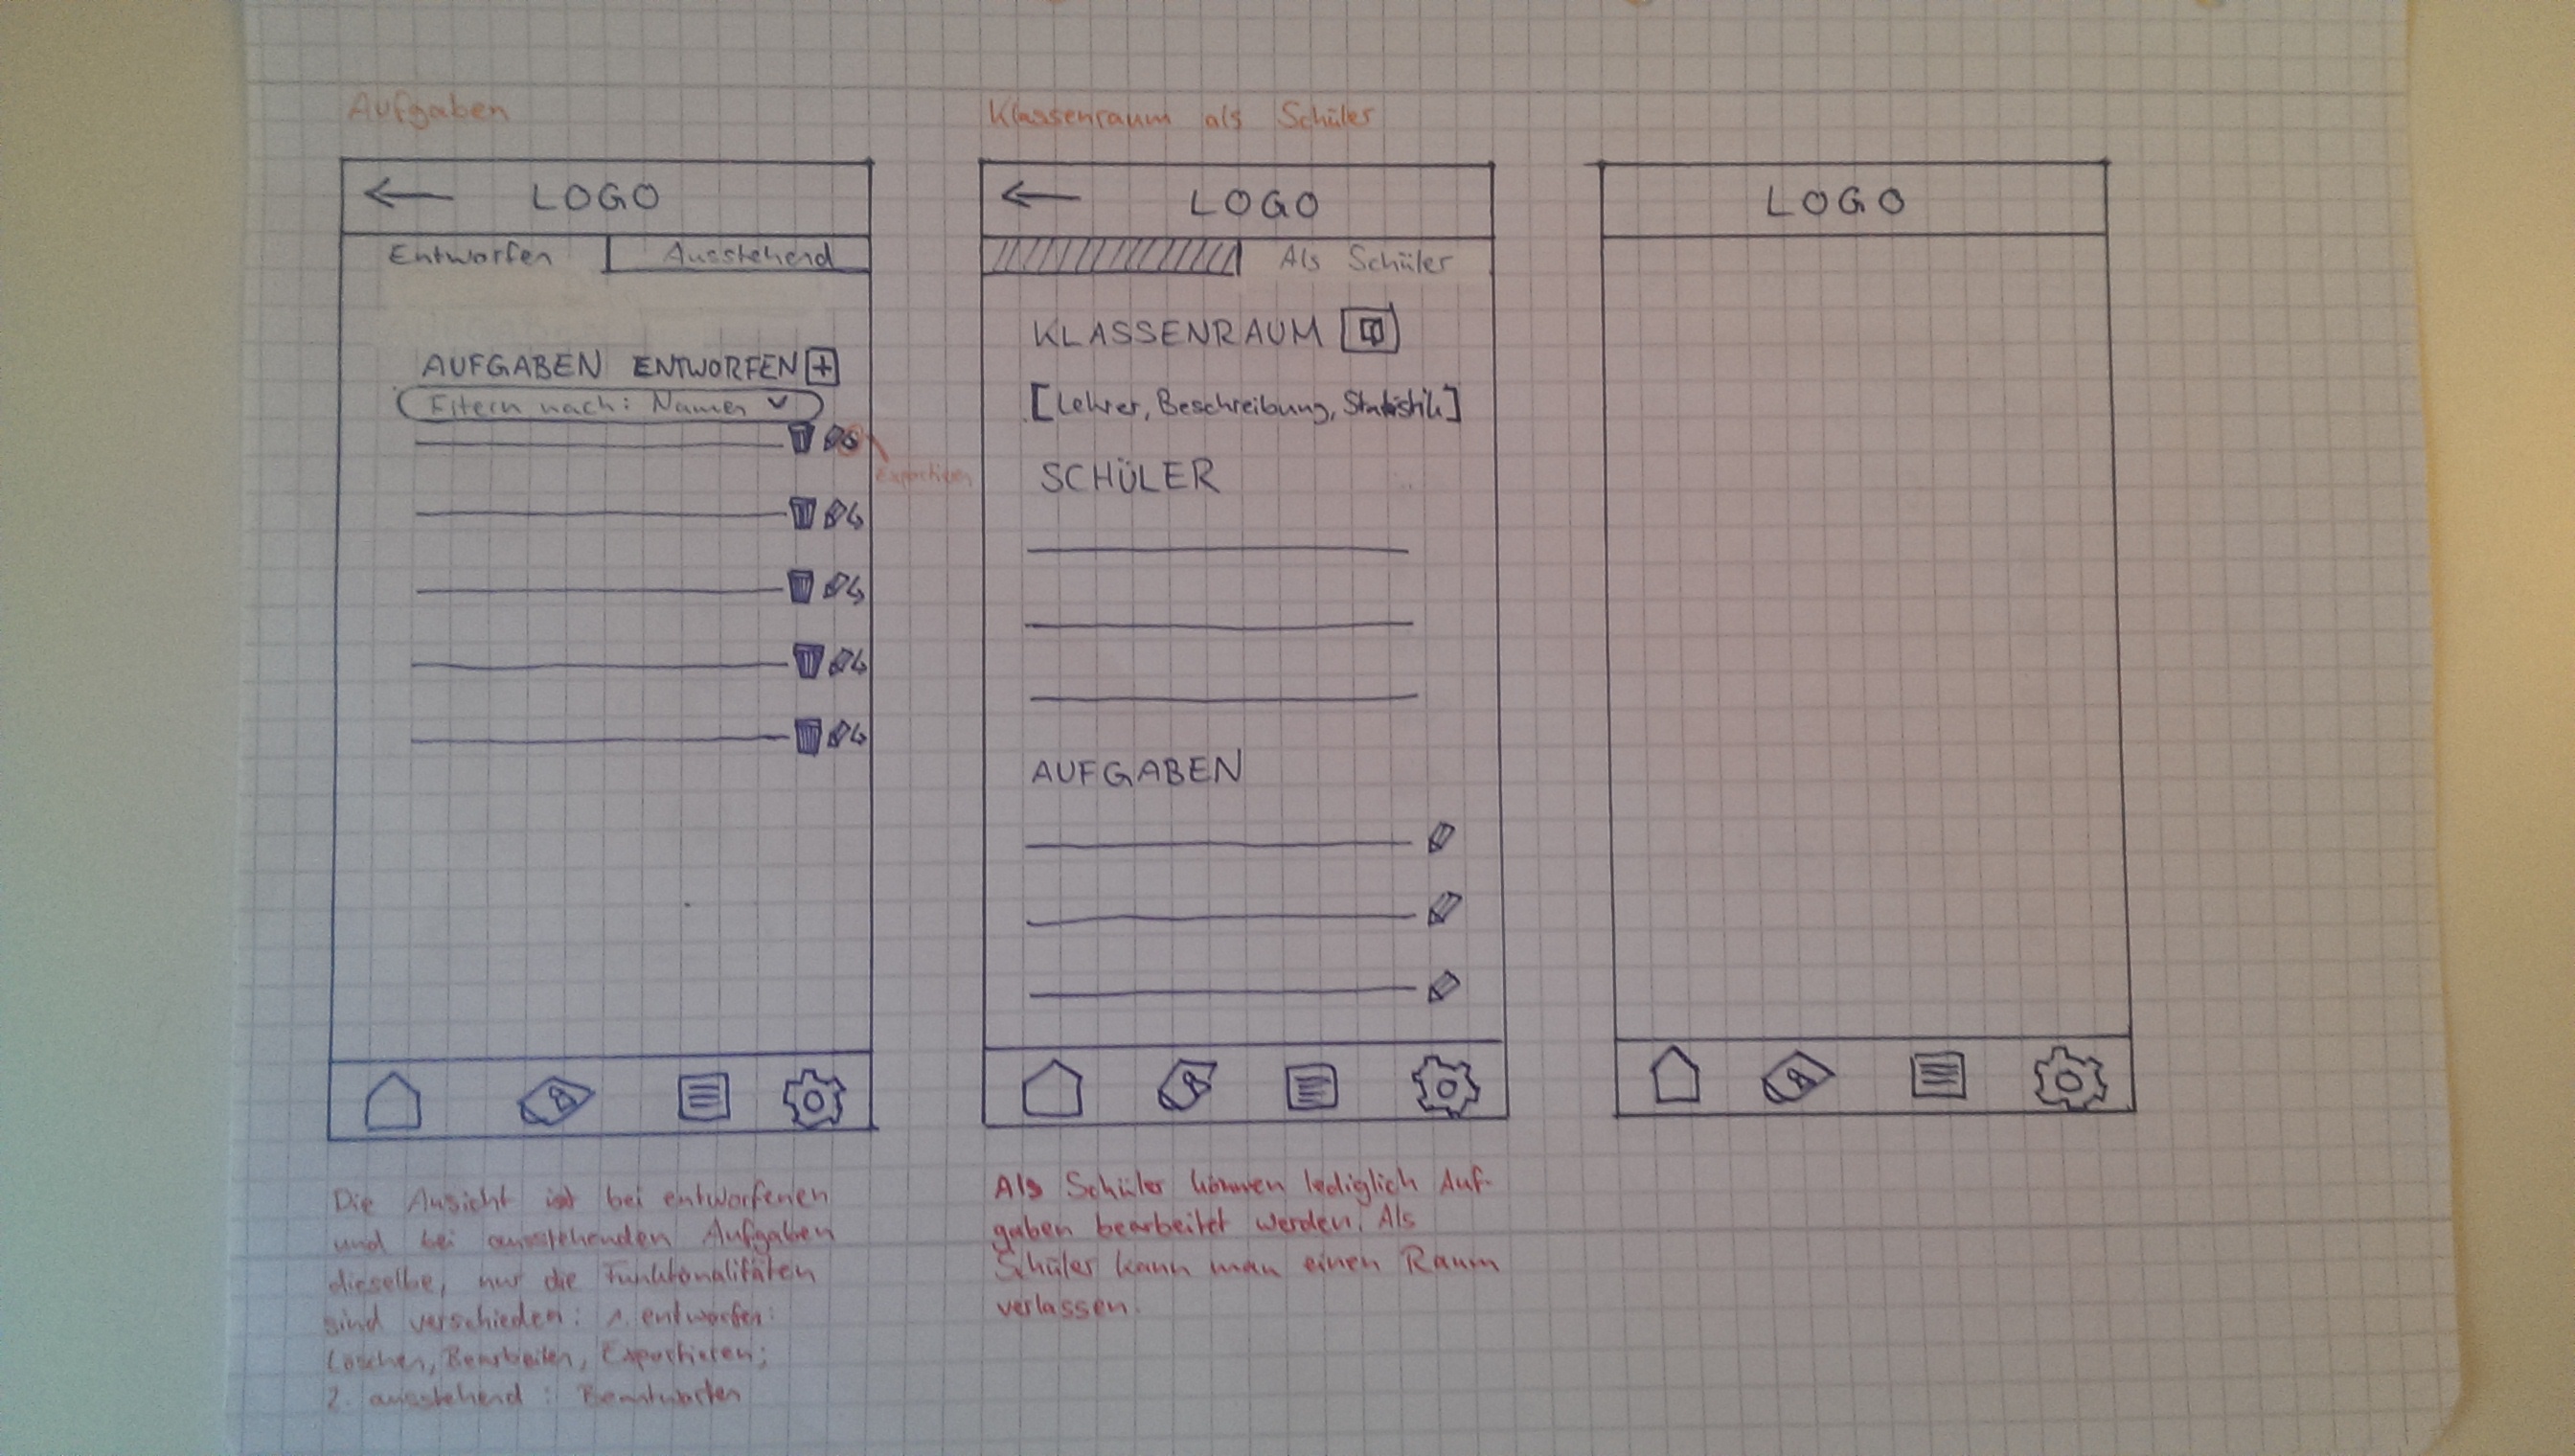 Aufgaben
LOGO
Entworfen Ausstehend
AUFGABEN ENTWORFEN +
Filtern nach: Namen
Exportieren
Die Ansicht ist bei entworfenen
und bei ausstehenden Aufgaben
dieselbe, nur die Funktionalitäten
sind verschieden: 1. entworfen:
Löschen, Bearbeiten, Exportieren;
2. ausstehend: Beantworten
Klassenraum als Schüler
LOGO
Als Schüler
KLASSENRAUM
[Lehrer, Beschreibung, Statistik]
SCHÜLER
AUFGABEN
Als Schüler können lediglich Auf-
gaben bearbeitet werden. Als
Schüler kann man einen Raum
verlassen.
LOGO